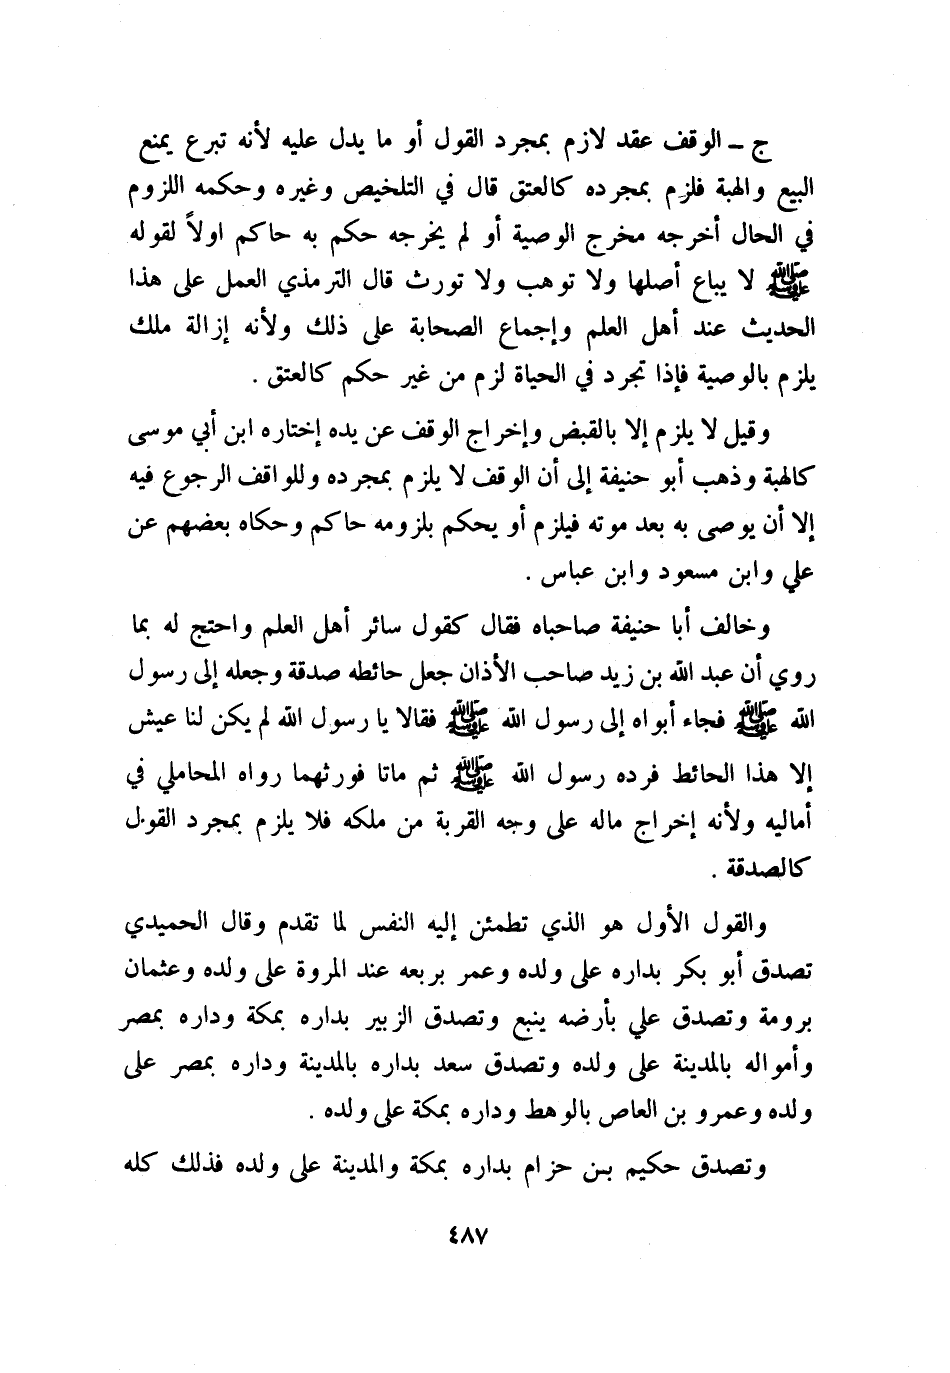 ج ــ الوقف عقد لازم بمجرد القول أو ما يدل عليه لأنه تبرع يمنع
البيع والهبة فلزم بمجرده كالعتق قال في التلخيص وغيره وحكمه اللزوم
في الحال أخرجه مخرج الوصية أو لم يخرجه حكم به حاكم اولاً لقوله
ﷺ لا يباع أصلها ولا توهب ولا تورث قال الترمذي العمل على هذا
الحديث عند أهل العلم وإجماع الصحابة على ذلك ولأنه إزالة ملك
يلزم بالوصية فإذا تجرد في الحياة لزم من غير حكم كالعتق .
وقيل لا يلزم إلا بالقبض وإخراج الوقف عن يده إختاره ابن أبي موسى
كالهبة وذهب أبو حنيفة إلى أن الوقف لا يلزم بمجرده وللواقف الرجوع فيه
إلا أن يوصى به بعد موته فيلزم أو يحكم بلزومه حاكم وحكاه بعضهم عن
علي وابن مسعود وابن عباس .
وخالف أبا حنيفة صاحباه فقال كقول سائر أهل العلم واحتج له بما
روي أن عبد الله بن زيد صاحب الأذان جعل حائطه صدقة وجعله إلى رسول
الله ﷺ فجاء أبواه إلى رسول الله ﷺ فقالا يا رسول الله لم يكن لنا عيش
إلا هذا الحائط فرده رسول الله ﷺ ثم ماتا فورثهما رواه المحاملي في
أماليه ولأنه إخراج ماله على وجه القربة من ملكه فلا يلزم بمجرد القول
كالصدقة .
والقول الأول هو الذي تطمئن إليه النفس لما تقدم وقال الحميدي
تصدق أبو بكر بداره على ولده وعمر بربعه عند المروة على ولده وعثمان
برومة وتصدق علي بأرضه ينبع وتصدق الزبير بداره بمكة وداره بمصر
وأمواله بالمدينة على ولده وتصدق سعد بداره بالمدينة وداره بمصر على
ولده وعمرو بن العاص بالوهط وداره بمكة على ولده .
وتصدق حكيم بن حزام بداره بمكة والمدينة على ولده فذلك كله
٤٨٧